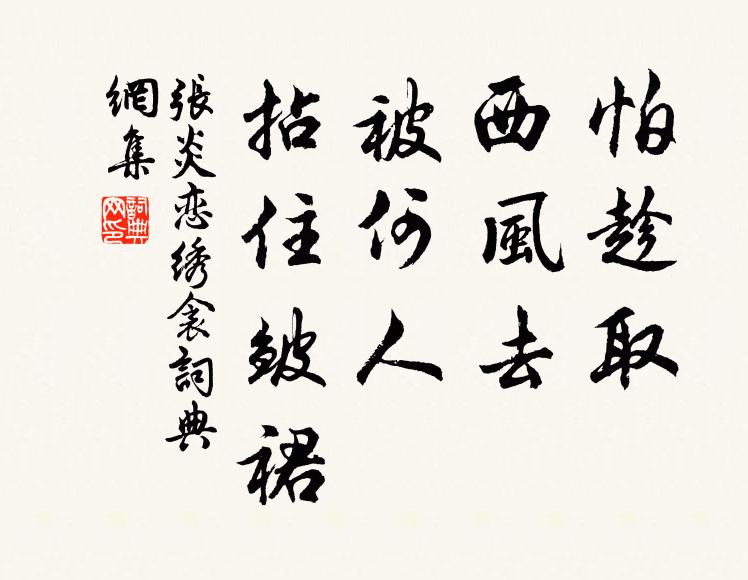 怕趁取
西風去
被何人
拈住皺裙
張炎恋綉衾詞典
網集
詞典
网印